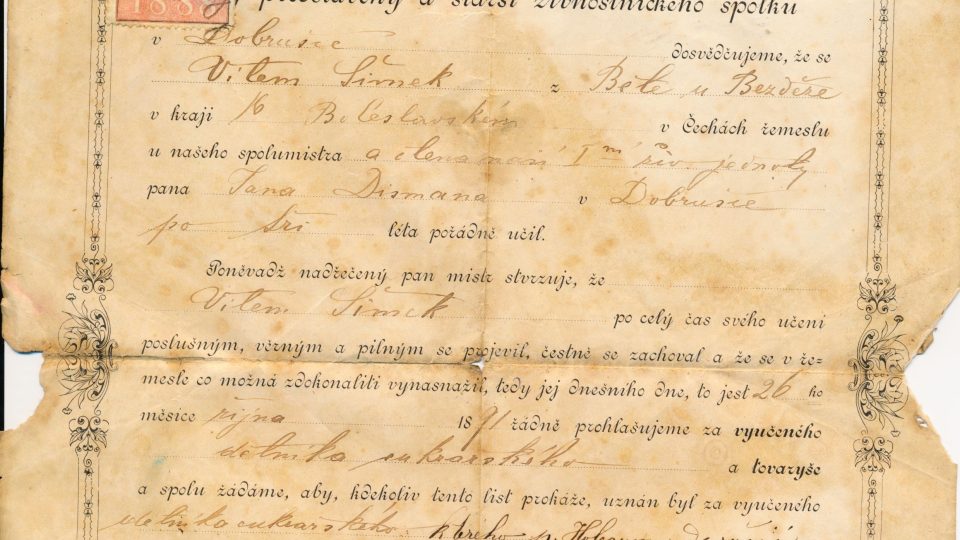 1888
představený a starší živnostnického spolku
v Dobrušce dosvědčujeme, že se
Vilem Šimek z Bělé u Bezděze
v kraji Boleslavském v Čechách řemeslu
u našeho spolumistra a člena živ. jednoty
pana Jana Dismana v Dobrušce
po tři léta pořádně učil.
Poněvadž nadřečený pan mistr stvrzuje, že
Vilem Šimek po celý čas svého učení
poslušným, věrným a pilným se projevil, čestně se zachoval a že se v ře-
mesle co možná zdokonaliti vynasnažil, tedy jej dnešního dne, to jest 26 ho
měsíce října 1891 řádně prohlašujeme za vyučeného
dělníka cukrářského a tovaryše
a spolu žádáme, aby, kdekoliv tento list prokáže, uznán byl za vyučeného
dělníka cukrářského